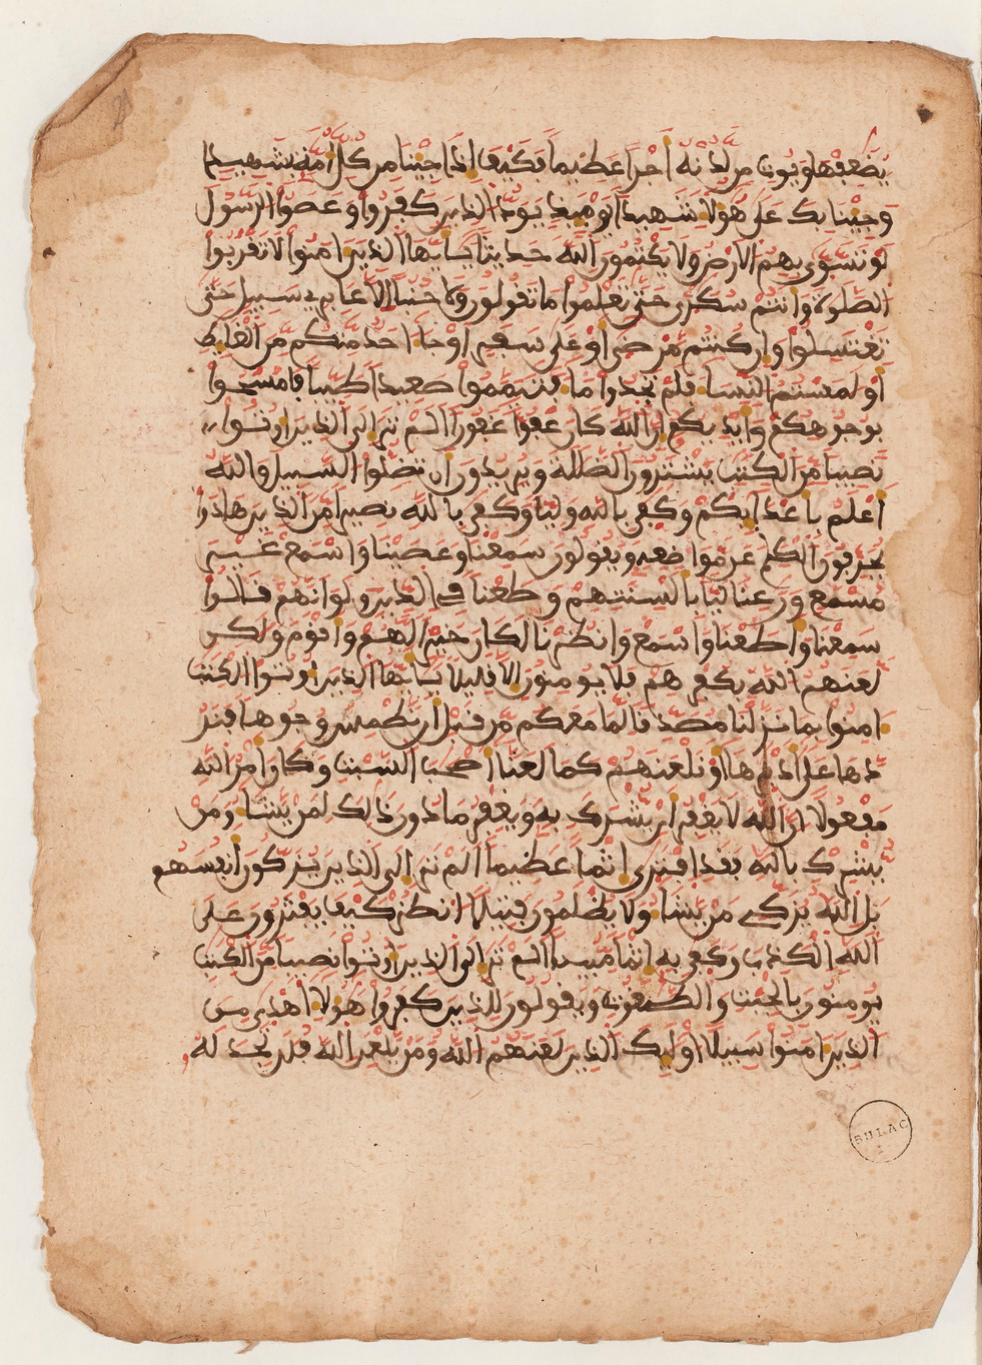 يضعفها ويوت من لدنه اجرا عظيما فكيف اذا جينا من كل امة بشهيد
وجينا بك على هولا شهيدا يوميذ يود الذين كفروا وعصوا الرسول
لو تسوى بهم الارض ولا يكتمون الله حديثا يايها الذين امنوا لا تقربوا
الصلوة وانتم سكرى حتى تعلموا ما تقولون ولا جنبا الا عابري سبيل حتى
تغتسلوا وان كنتم مرضى او على سفر او جا احد منكم من الغايط
او لمستم النسا فلم تجدوا ما فتيمموا صعيدا طيبا فامسحوا
بوجوهكم وايديكم ان الله كان عفوا غفورا الم تر الى الذين اوتوا
نصيبا من الكتب يشترون الضللة ويريدون ان تضلوا السبيل والله
اعلم باعدايكم وكفى بالله وليا وكفى بالله نصيرا من الذين هادوا
يحرفون الكلم عن مواضعه ويقولون سمعنا وعصينا واسمع غير
مسمع ورعنا ليا بالسنتهم وطعنا في الدين ولو انهم قالوا
سمعنا واطعنا واسمع وانظرنا لكان خيرا لهم واقوم ولكن
لعنهم الله بكفرهم فلا يومنون الا قليلا يايها الذين اوتوا الكتب
امنوا بما نزلنا مصدقا لما معكم من قبل ان نطمس وجوها فنر
دها على ادبرها او نلعنهم كما لعنا اصحب السبت وكان امر الله
مفعولا ان الله لا يغفر ان يشرك به ويغفر ما دون ذلك لمن يشا ومن
يشرك بالله فقد افترى اثما عظيما الم تر الى الذين يزكون انفسهم
بل الله يزكي من يشا ولا يظلمون فتيلا انظر كيف يفترون على
الله الكذب وكفى به اثما مبينا الم تر الى الذين اوتوا نصيبا من الكتب
يومنون بالجبت والطغوت ويقولون للذين كفروا هولا اهدى من
الذين امنوا سبيلا اوليك الذين لعنهم الله ومن يلعن الله فلن تجد له
BULAC